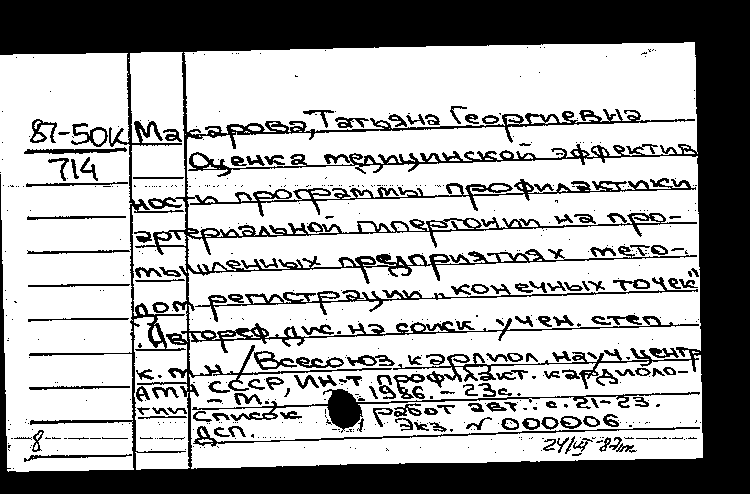 87-50К
714
Макарова, Татьяна Георгиевна
Оценка медицинской эффектив
ности программы профилактики
артериальной гипертонии на про-
мышленных предприятиях мето-
дом регистрации „конечных точек"
. Автореф. дис. на соиск. учен. степ.
к. м. н. / Всесоюз. кардиол. науч. центр
АМН СССР, Ин-т профилакт. кардиоло-
гии - М., 1986. - 23с.
Список работ авт.: с. 21-23.
ДСП. Экз. N 000006.
8